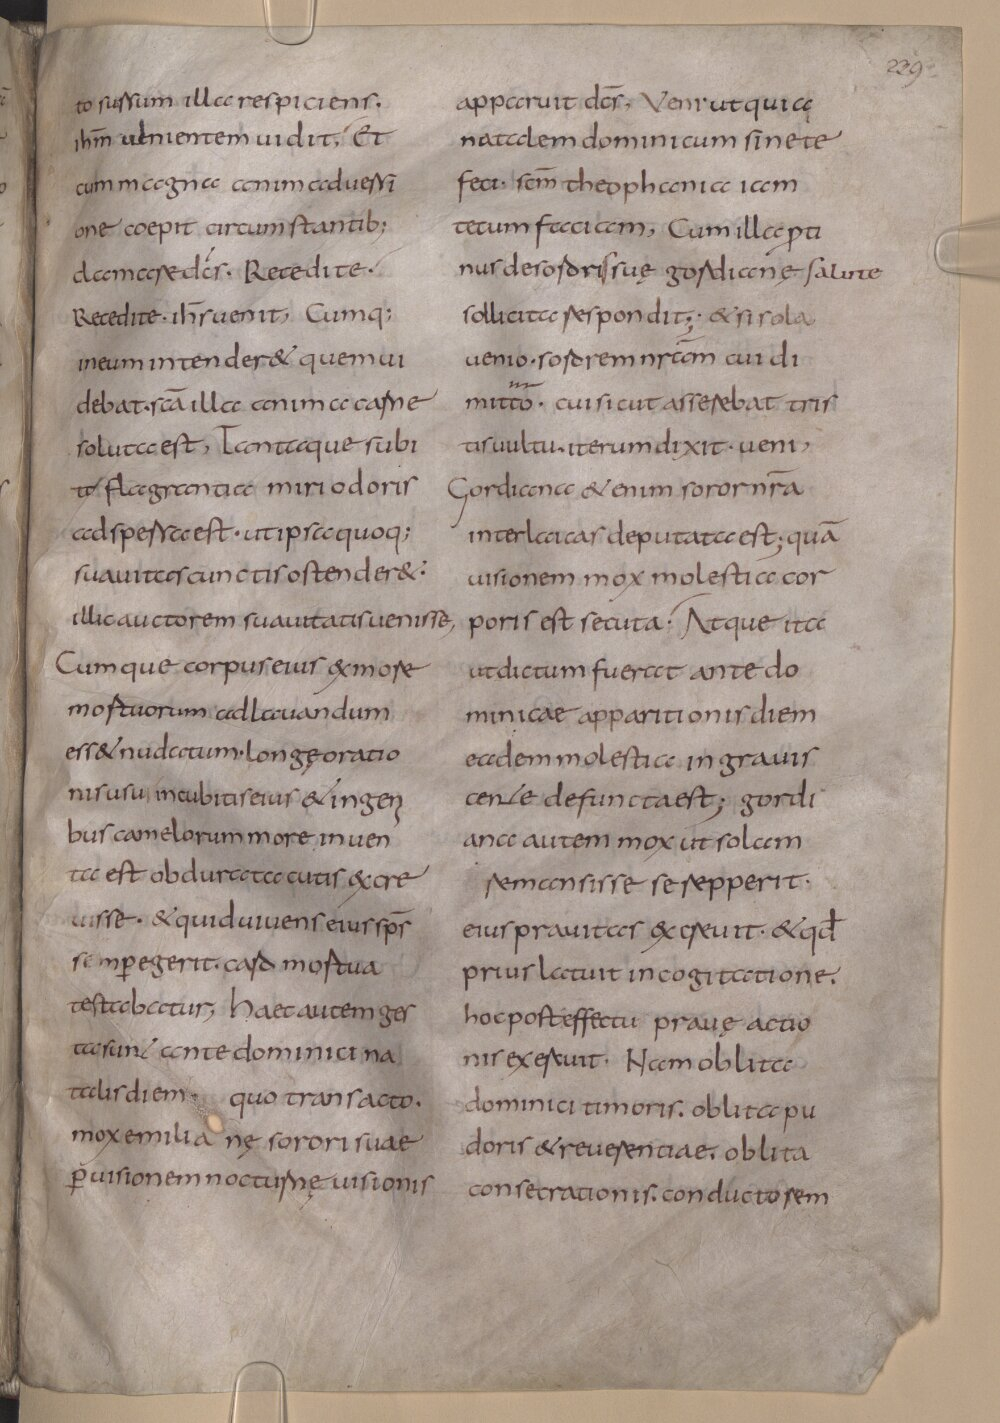 229
to sursum illa respiciens.
ihm̅ venientem vidit, Et
cum magna animadversi
one coepit circumstantib;
clamare dc̄s. Recedite.
Recedite. ihs̅ venit, Cumq;
ineum intender& quem vi
debat. sc̅a illa anima carne
soluta est, Tantaque subi
to flagrantia miri odoris
adspersa est. ut ipsa quoq;
suavitas cunctis ostender&.
illic auctorem suavitatis venisse,
Cumque corpus eius ex more
mortuorum ad lavandum
ess& nudatum. longę oratio
nis usu incubitis eius & in gen
bus camelorum more inven
ta est obdurata cutis excre
visse. & quid vivens eius sp̅s
semp̱ egerit. caro mortua
testabatur, Haec autem ges
ta sunt ante dominici na
talis diem. quo transacto.
mox emilianę sorori suae
p̱ visionem nocturnę visionis
apparuit dc̄s, Veni ut quia
natalem dominicum sine te
feci. sc̅m theophania iam
tecum faciam, Cum illa p̱ti
nus de sororis suę gordianę salute
sollicita respondit; & si sola
venio. sororem nr̅am cui di
mitto. cui sicut asserebat tris
tis vultu. iterum dixit. veni,
Gordiana & enim soror nr̅a
inter laicas deputata est; quā
visionem mox molestia cor
poris est secuta. Atque ita
ut dictum fuerat ante do
minicae apparitionis diem
eadem molestia ingravis
cente defuncta est; gordi
ana autem mox ut solam
remansisse se repperit.
eius pravitas excrevit. & qđ
prius latuit in cogitatione.
hoc post effectu pravę actio
nis exercuit. Nam oblita
dominici timoris. oblita pu
doris & reverentiae. oblita
consecrationis. conductorem